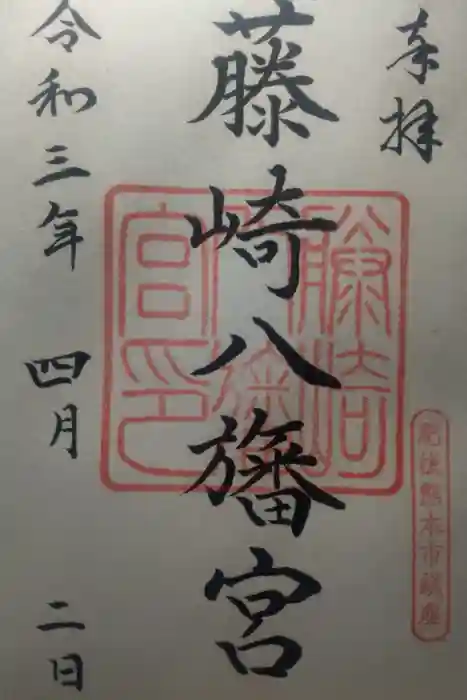 奉拝
藤崎八旛宮
令和三年 四月 二日
藤崎
八旛
宮印
肥後熊本市鎮座